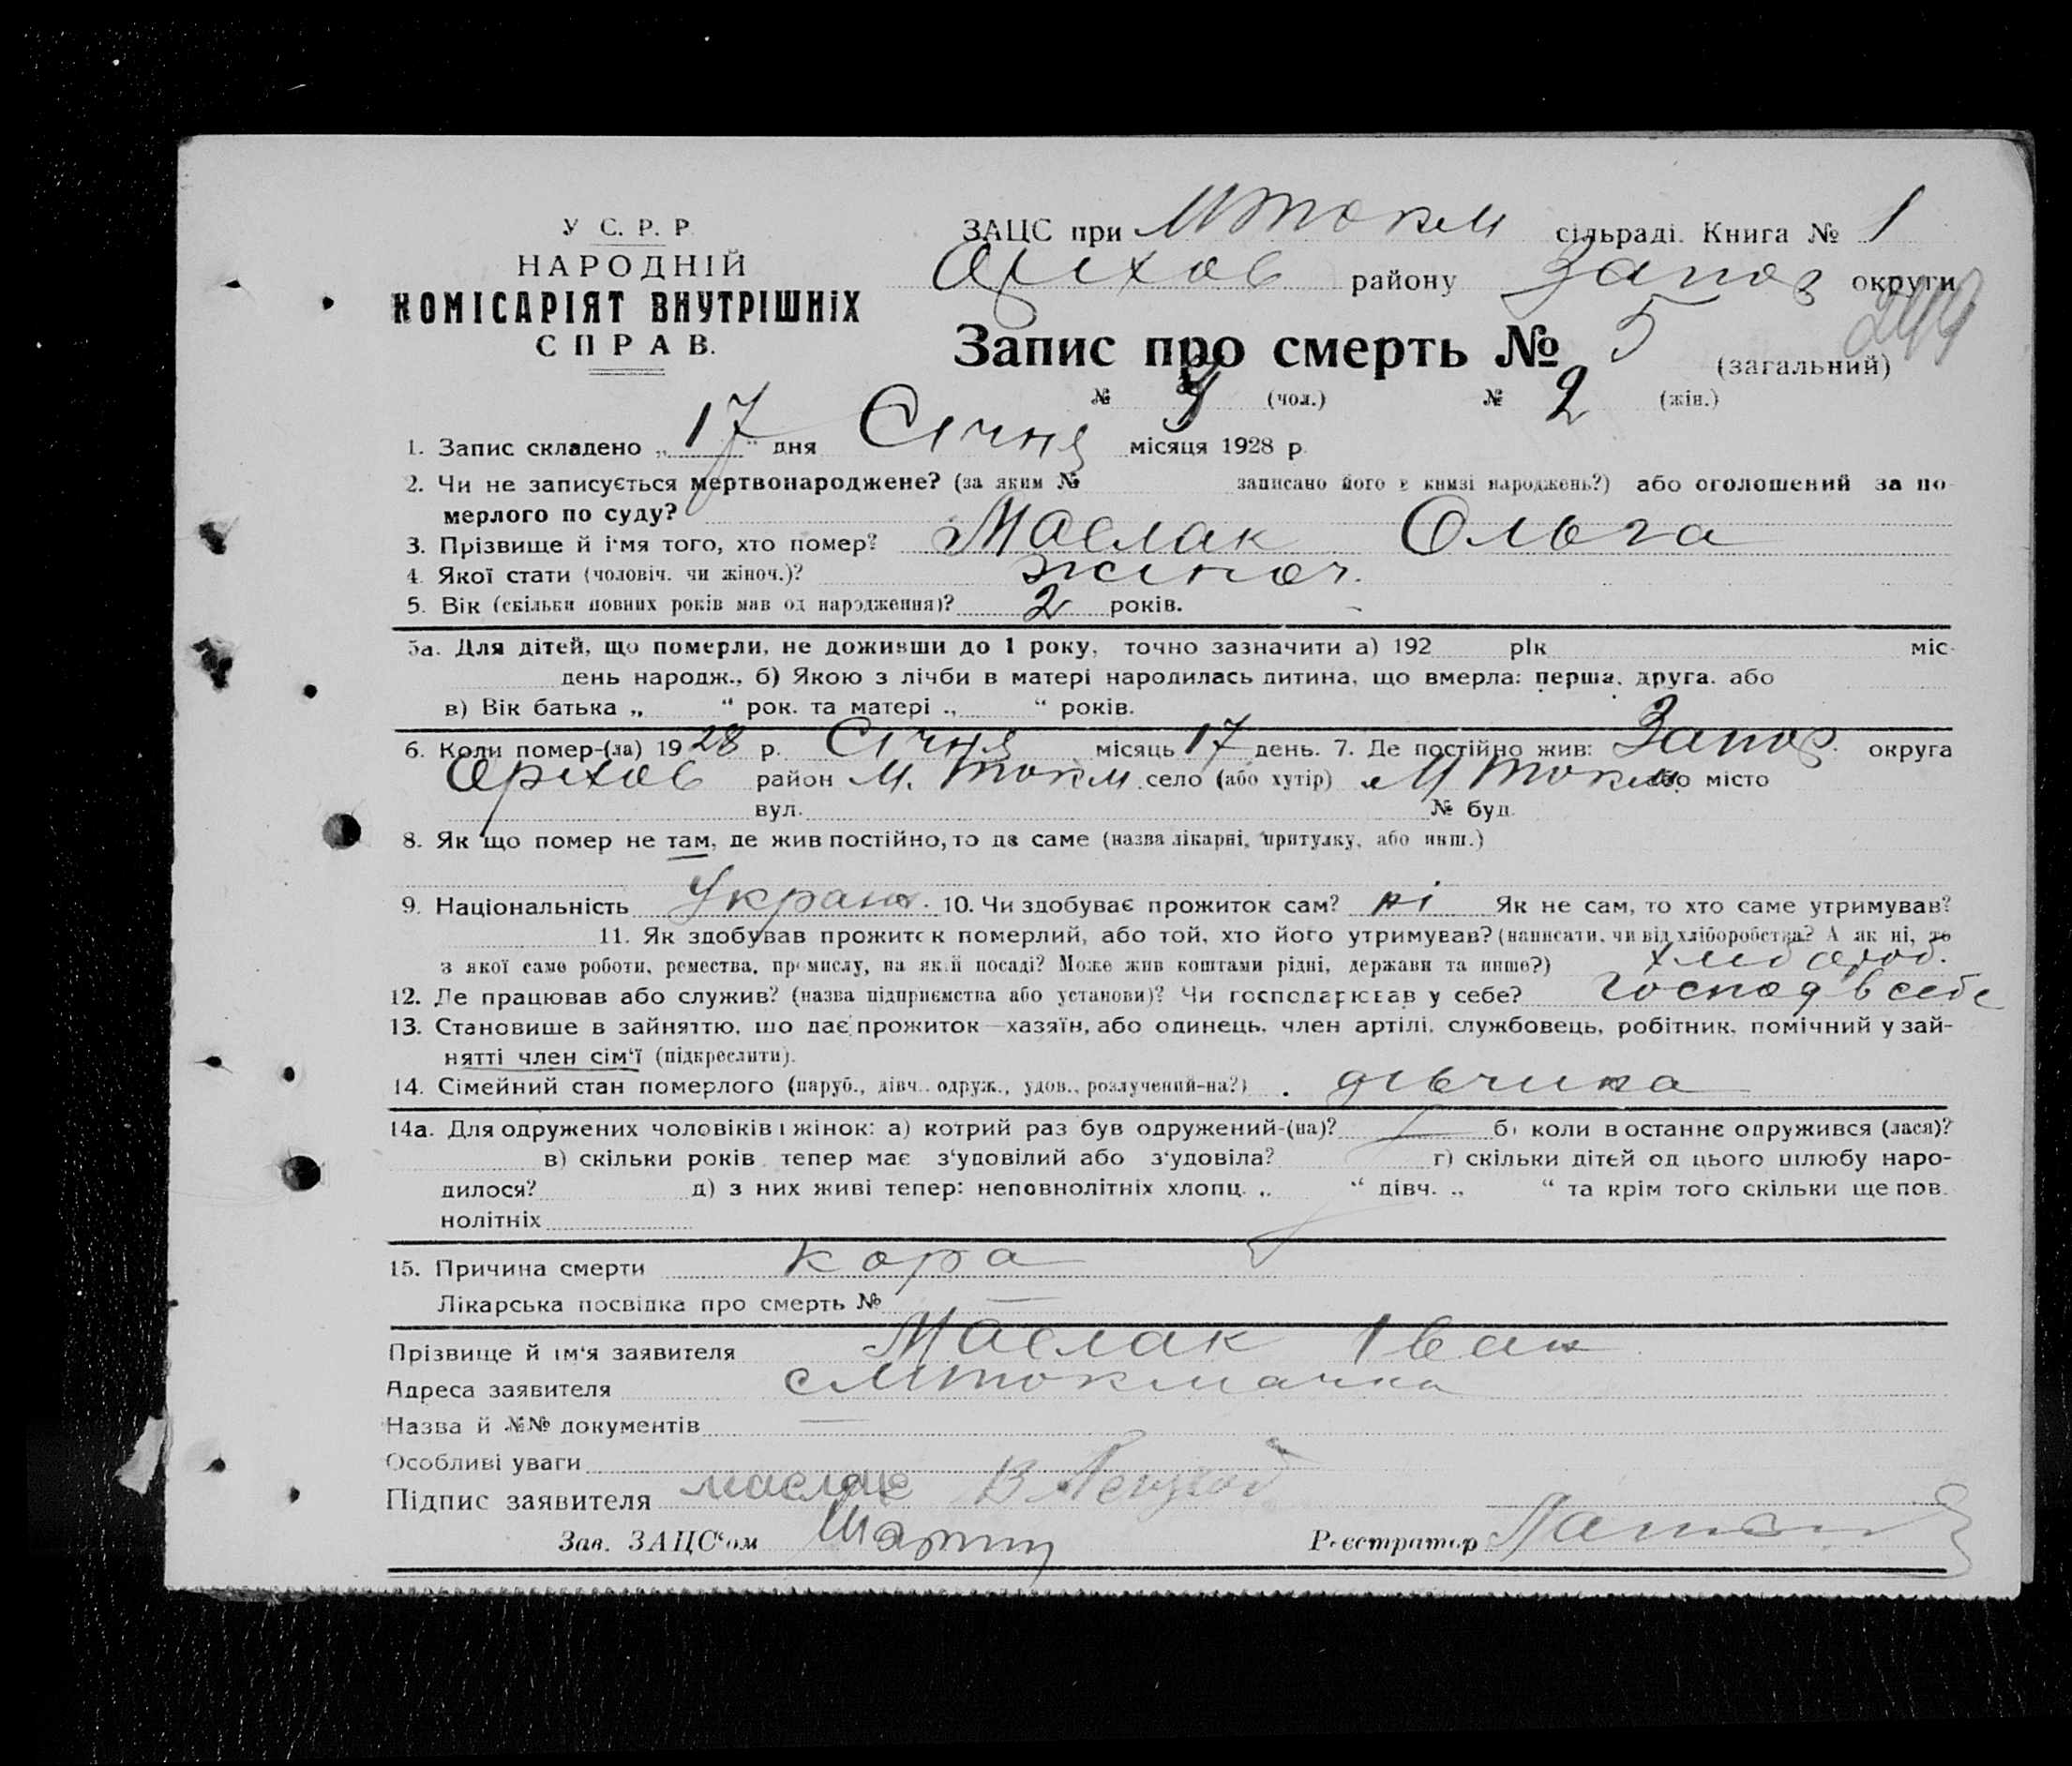 У С. Р. Р
НАРОДНІЙ
КОМІСАРІЯТ ВНУТРІШНіХ
СПРАВ.
ЗАЦС при М Токм сільраді. Книга № 1
Оріхов району Запор округи
Запис про смерть № 5 (загальний)
№ (чол.) № 2 (жін.)
1. Запис складено „17" дня Січня місяця 1928 р.
2. Чи не записується мертвонароджене? (за яким № записано його в книзі народжень?) або оголошений за по-
мерлого по суду?
3. Прізвище й і'мя того, хто помер? Маслак Ольга
4. Якої стати (чоловіч. чи жіноч.)? жіноч.
5. Вік (скільки повних років мав од народження)? 2 років.
5а. Для дітей, що померли, не доживши до 1 року, точно зазначити а) 192 рік міс.
день народж., б) Якою з лічби в матері народилась дитина, що вмерла: перша, друга. або
в) Вік батька „ “ рок. та матері „ “ років.
6. Коли помер-(ла) 1928 р. Січня місяць 17 день. 7. Де постійно жив: Запор. округа
Оріхов район М. Токм село (або хутір) М Токм або місто
вул. № буд.
8. Як що помер не там, де жив постійно, то де саме (назва лікарні, притулку, або инш.)
9. Національність Украін. 10. Чи здобуває прожиток сам? ні Як не сам, то хто саме утримував?
11. Як здобував прожиток померлий, або той, хто його утримував? (написати, чи від хліборобства? А як ні, то
з якої саме роботи, ремества, промислу, на якій посаді? Може жив коштами рідні, держави та инше?) хлібороб.
12. Де працював або служив? (назва підприємства або установи)? Чи господарював у себе? господ в себе
13. Становище в зайняттю, що дає прожиток—хазяїн, або одинець, член артілі, службовець, робітник, помічний у зай-
нятті член сім'ї (підкреслити).
14. Сімейний стан померлого (паруб., дівч., одруж., удов., розлучений-на?) дівчина
14а. Для одружених чоловіків і жінок: а) котрий раз був одружений-(на)? б) коли востаннє одружився (лася)?
в) скільки років тепер має з'удовілий або з'удовіла? г) скільки дітей од цього шлюбу наро-
дилося? д) з них живі тепер: неповнолітніх хлопц. „ “ дівч. „ “ та крім того скільки ще пов.
нолітніх
15. Причина смерти кора
Лікарська посвідка про смерть № —
Прізвище й ім'я заявителя Маслак Іван
Адреса заявителя с М Токмачка
Назва й №№ документів —
Особливі уваги
Підпис заявителя
Зав. ЗАЦС'ом
Реєстратор